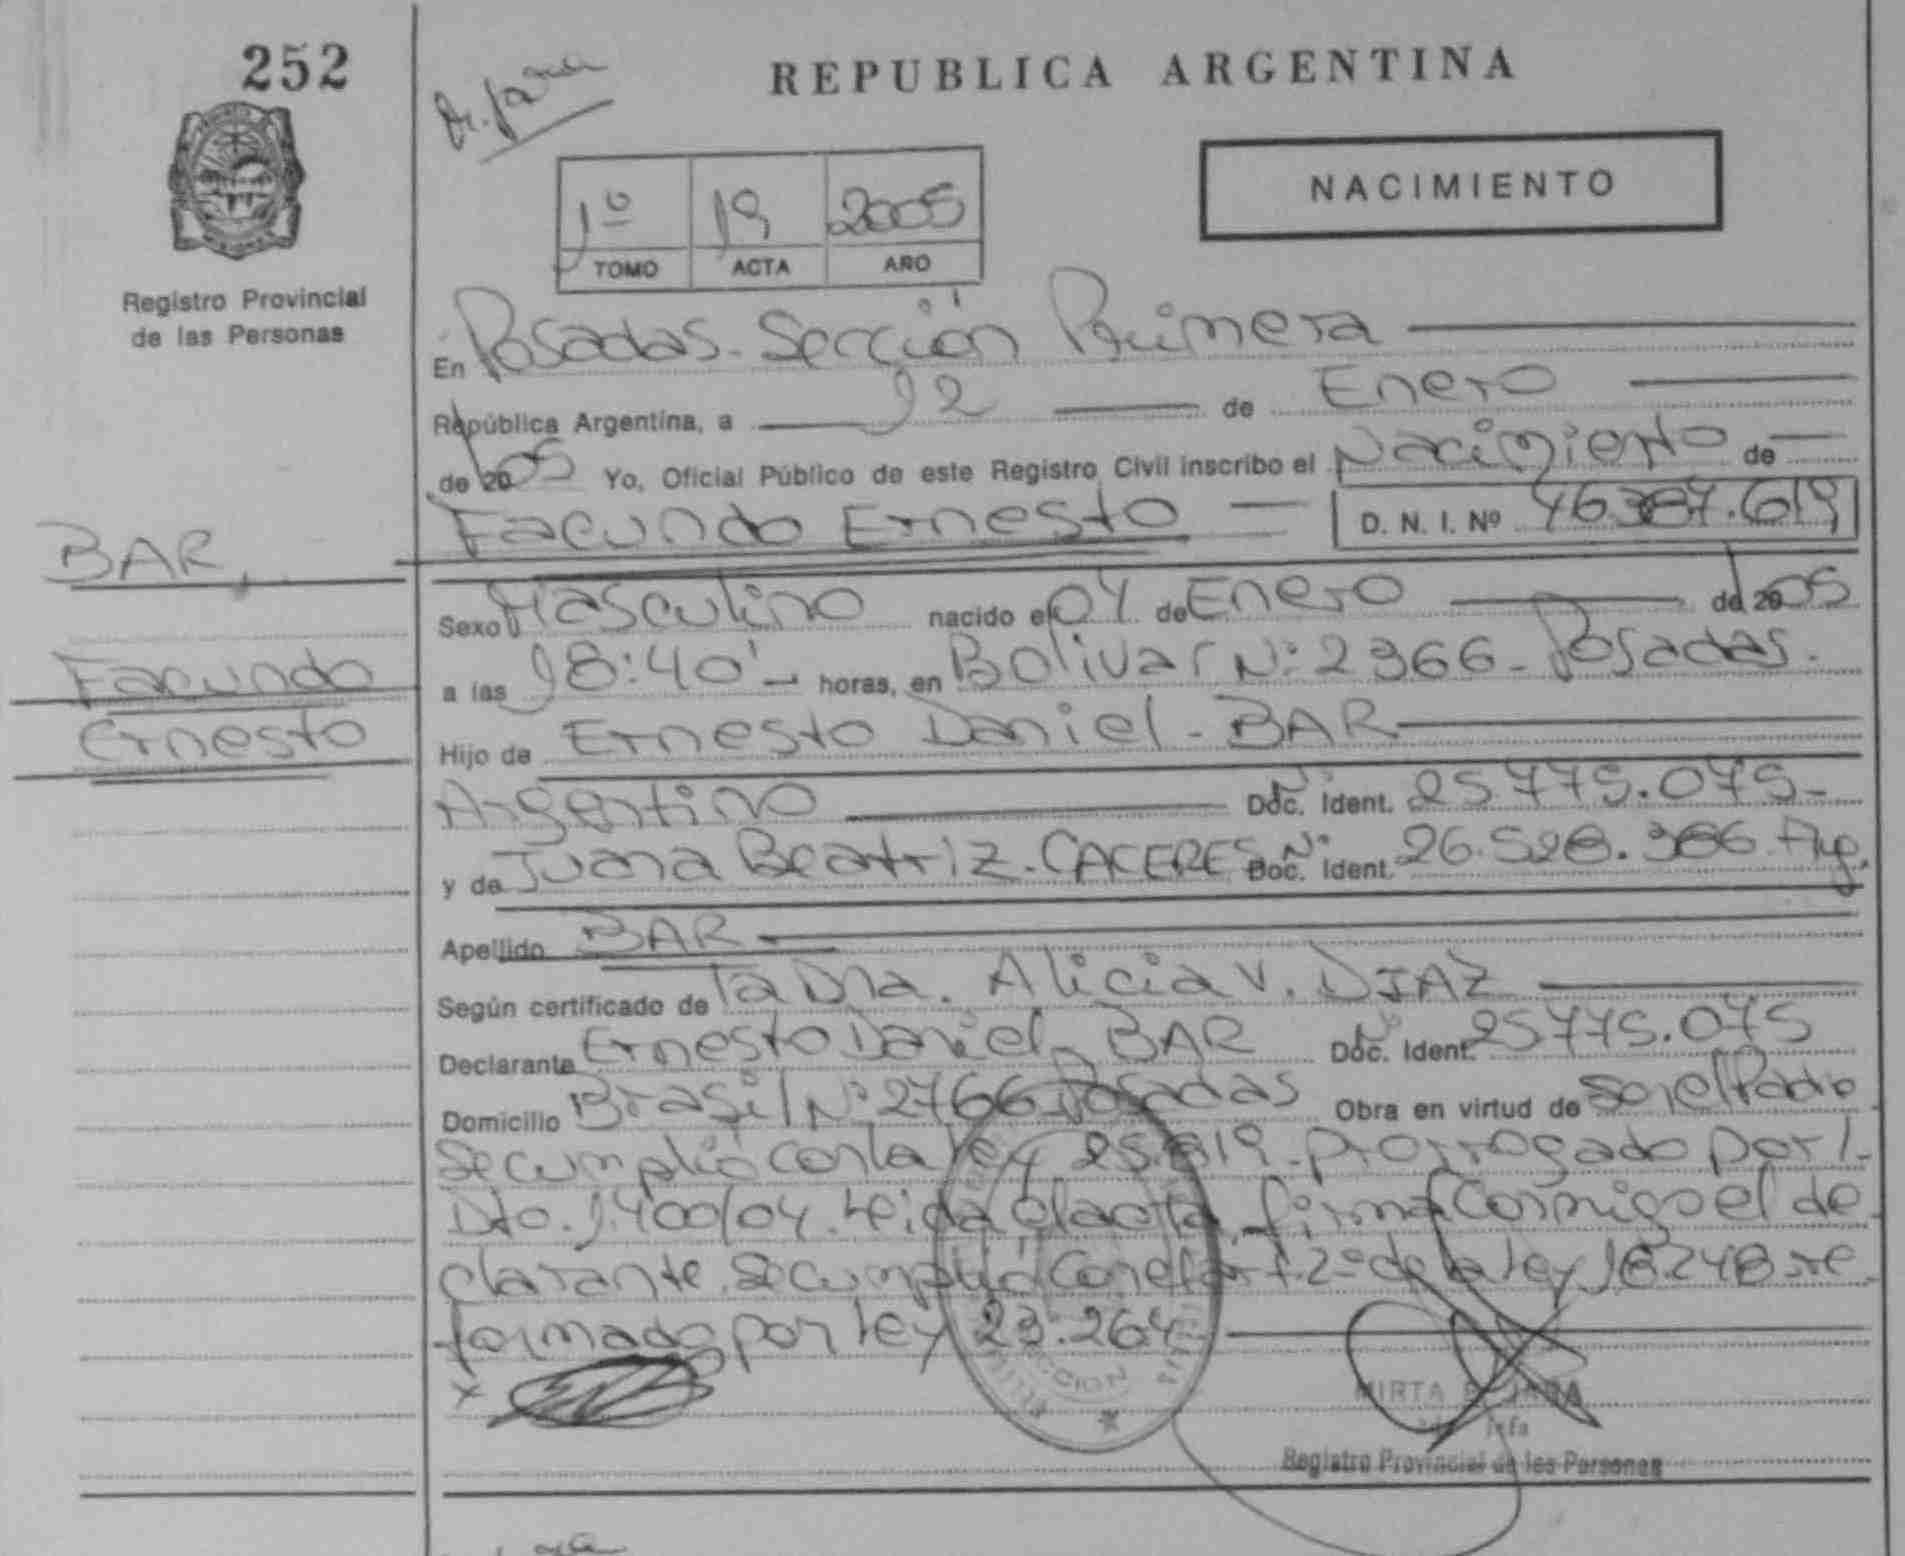 252
REPUBLICA ARGENTINA
NACIMIENTO
1º 19 2005
TOMO ACTA AÑO
Registro Provincial
de las Personas
En Posadas. Sección Primera
República Argentina, a 12 de Enero
de 2005 Yo, Oficial Público de este Registro Civil inscribo el Nacimiento de
Facundo Ernesto D. N. I. Nº 46.387.619
BAR,
Facundo
Ernesto
Sexo Masculino nacido el 04 de Enero de 2005
a las 18:40' horas, en Bolivar Nº 2366 - Posadas.
Hijo de Ernesto Daniel - BAR
Argentino Doc. Ident. Nº 25.775.075-
y de Juana Beatriz. CACERES Doc. Ident. Nº 26.528.386 Arg.
Apellido BAR
Según certificado de la Dra. Alicia V. DIAZ
Declarante Ernesto Daniel - BAR Doc. Ident. Nº 25775.075
Domicilio Brasil Nº 2766 Posadas Obra en virtud de ser el Padre
Se cumplió con la ley 25.819 - prorrogado por l-
Dto. 1.400/04. Leida el acta, firma conmigo el de-
clarante. Se cumplió con el art. 2º de la ley 18.248 re-
formado por ley 23.264
x
MIRTA JARA
Jefa
Registro Provincial de las Personas